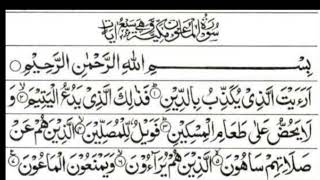 سُورَةُ الْمَاعُونِ مَكِّيَّةٌ وَهِيَ سَبْعُ آيَاتٍ
بِسْمِ اللّٰهِ الرَّحْمٰنِ الرَّحِيْمِ
اَرَءَيْتَ الَّذِىْ يُكَذِّبُ بِالدِّيْنِ ۝١ فَذٰلِكَ الَّذِىْ يَدُعُّ الْيَتِيْمَ ۝٢ وَ
لَا يَحُضُّ عَلٰى طَعَامِ الْمِسْكِيْنِ ۝٣ فَوَيْلٌ لِّلْمُصَلِّيْنَ ۝٤ الَّذِيْنَ هُمْ عَنْ
صَلَاتِهِمْ سَاهُوْنَ ۝٥ الَّذِيْنَ هُمْ يُرَآءُوْنَ ۝٦ وَيَمْنَعُوْنَ الْمَاعُوْنَ ۝٧